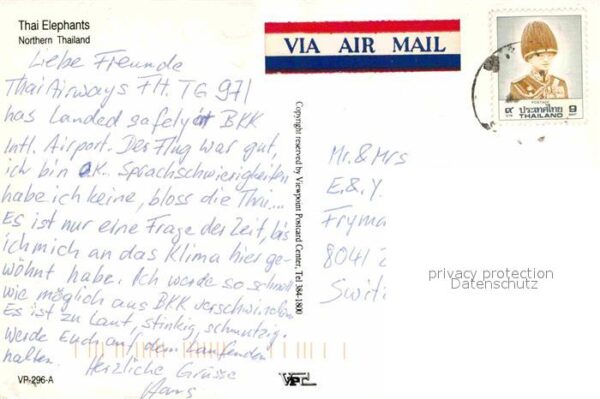 Thai Elephants
Northern Thailand
Liebe Freunde
Thai Airways Flt. TG 971
has landed safely at BKK
Intl. Airport. Der Flug war gut,
ich bin OK. Sprachschwierigkeiten
habe ich keine, bloss die Thai...
Es ist nur eine Frage der Zeit, bis
ich mich an das Klima hier ge-
wöhnt habe. Ich werde so schnell
wie möglich aus BKK verschwinden
Es ist zu laut, stinkig, schmutzig.
Werde Euch auf dem Laufenden
halten. Herzliche Grüsse
Hans
VP-296-A
VIA AIR MAIL
Copyright reserved by Viewpoint Postcard Center, Tel 384-1800
VPC
POSTAGE
๙ ประเทศไทย 9
THAILAND
Mr. & Mrs
E. & Y.
Fryma
8041 Z
Switi
privacy protection
Datenschutz